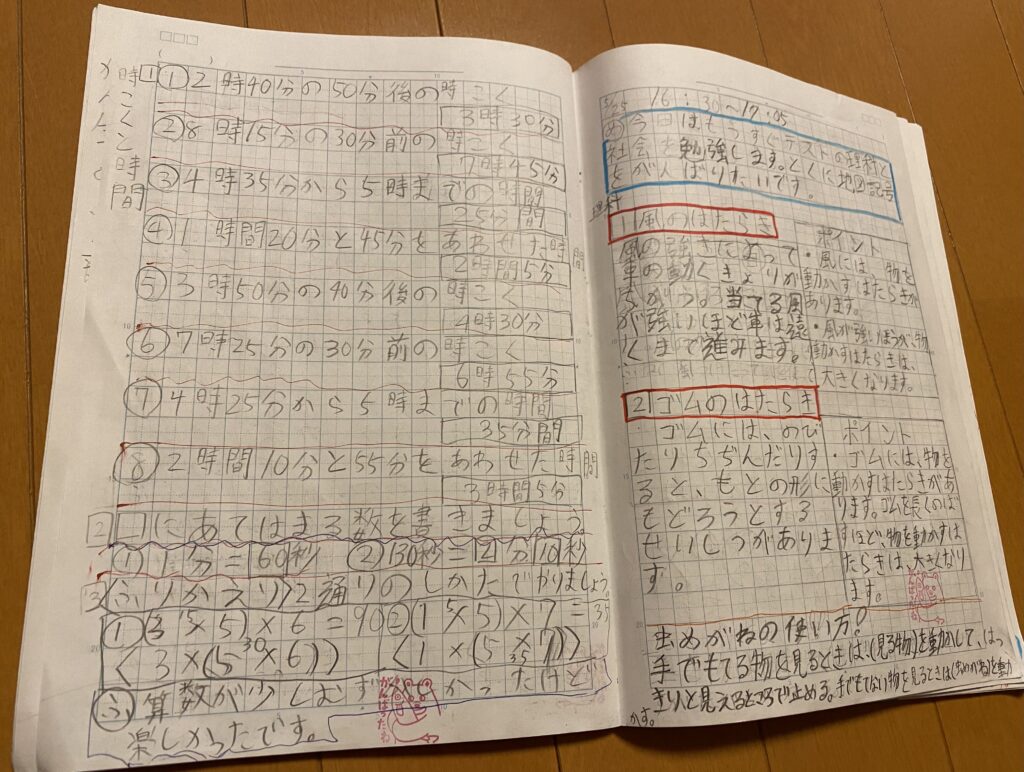 時こくと時間
1 ① 2時40分の50分後の時こく
3時30分
② 8時15分の30前の時こく
7時45分
③ 4時35分から5時までの時間
25分間
④ 1時間20分と45分をあわせた時間
2時間5分
⑤ 3時50分の40分後の時こく
4時30分
⑥ 7時25分の30分前の時こく
6時55分
⑦ 4時25分から5時までの時間
35分間
⑧ 2時間10分と55分をあわせた時間
3時間5分
2 □にあてはまる数を書きましょう。
① 1分=60秒 ② 130秒=2分10秒
3 ふりかえり 2通りのしかたでかりましょう。
① (3×5)×6=90 ② (1×5)×7=35
(3×(5×6)) (1×(5×7))
ふ 算数が少しむずかしかったけど
楽しかったです。
がんばったね
3/25 16:30~17:05
め 今日はもうすぐテストの理科と
社会を勉強します。とくに地図記号
をがんばりたいです。
理科
1 風のはたらき
風の強さによって
車の動くきょりが
ちがう。当てる風
が強いほど車は遠
くまで進みます。
ポイント
・風には、物を
動かすはたらきが
あります。
・風が強いほうが、物
動かすはたらきは、
大きくなります。
2 ゴムのはたらき
ゴムには、のび
たりちぢんだりす
ると、もとの形に
もどろうとする
せいしつがありま
す。
ポイント
・ゴムには、物を
動かすはたらきがあ
ります。ゴムを長くのば
すほど、物を動かすは
たらきは、大きくなり
ます。
虫めがねの使い方。
手でもてる物を見るときは、(見る物)を動かして、はっ
きりと見えるところで止める。手でもてない物を見るときは(虫めがね)を動
かす。